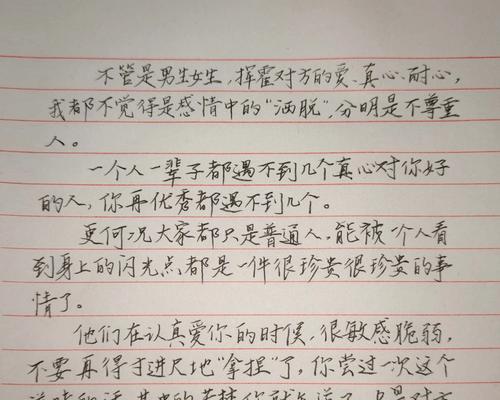 不管是男生女生，挥霍对方的爱、真心、耐心，
我都不觉得是感情中的“洒脱”，分明是不尊重
人。
一个人一辈子都遇不到几个真心对你好
的人，你再优秀都遇不到几个。
更何况大家都只是普通人，能被一个人看
到身上的闪光点都是一件很珍贵很珍贵的事
情了。
他们在认真爱你的时候，很敏感脆弱，
不要再得寸进尺地“拿捏”了，你尝过一次这个